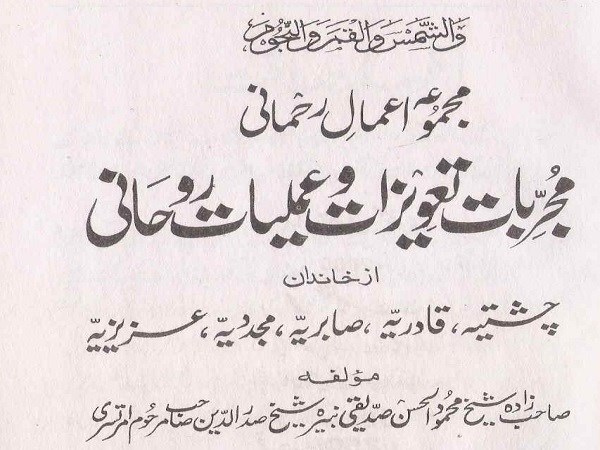 وَالشَّمْسَ وَالْقَمَرَ وَالنُّجُوْمَ
مجموعہ اعمالِ رحمانی
مجرّبات تعویزات و عملیات روحانی
از خاندان
چشتیہ، قادریّہ، صابریّہ، مجددیّہ، عزیزیّہ
مؤلفہ
صاحب زادہ شیخ محمود الحسن صدیقی نبیرہ شیخ صدر الدین صاحب مرحوم امرتسری